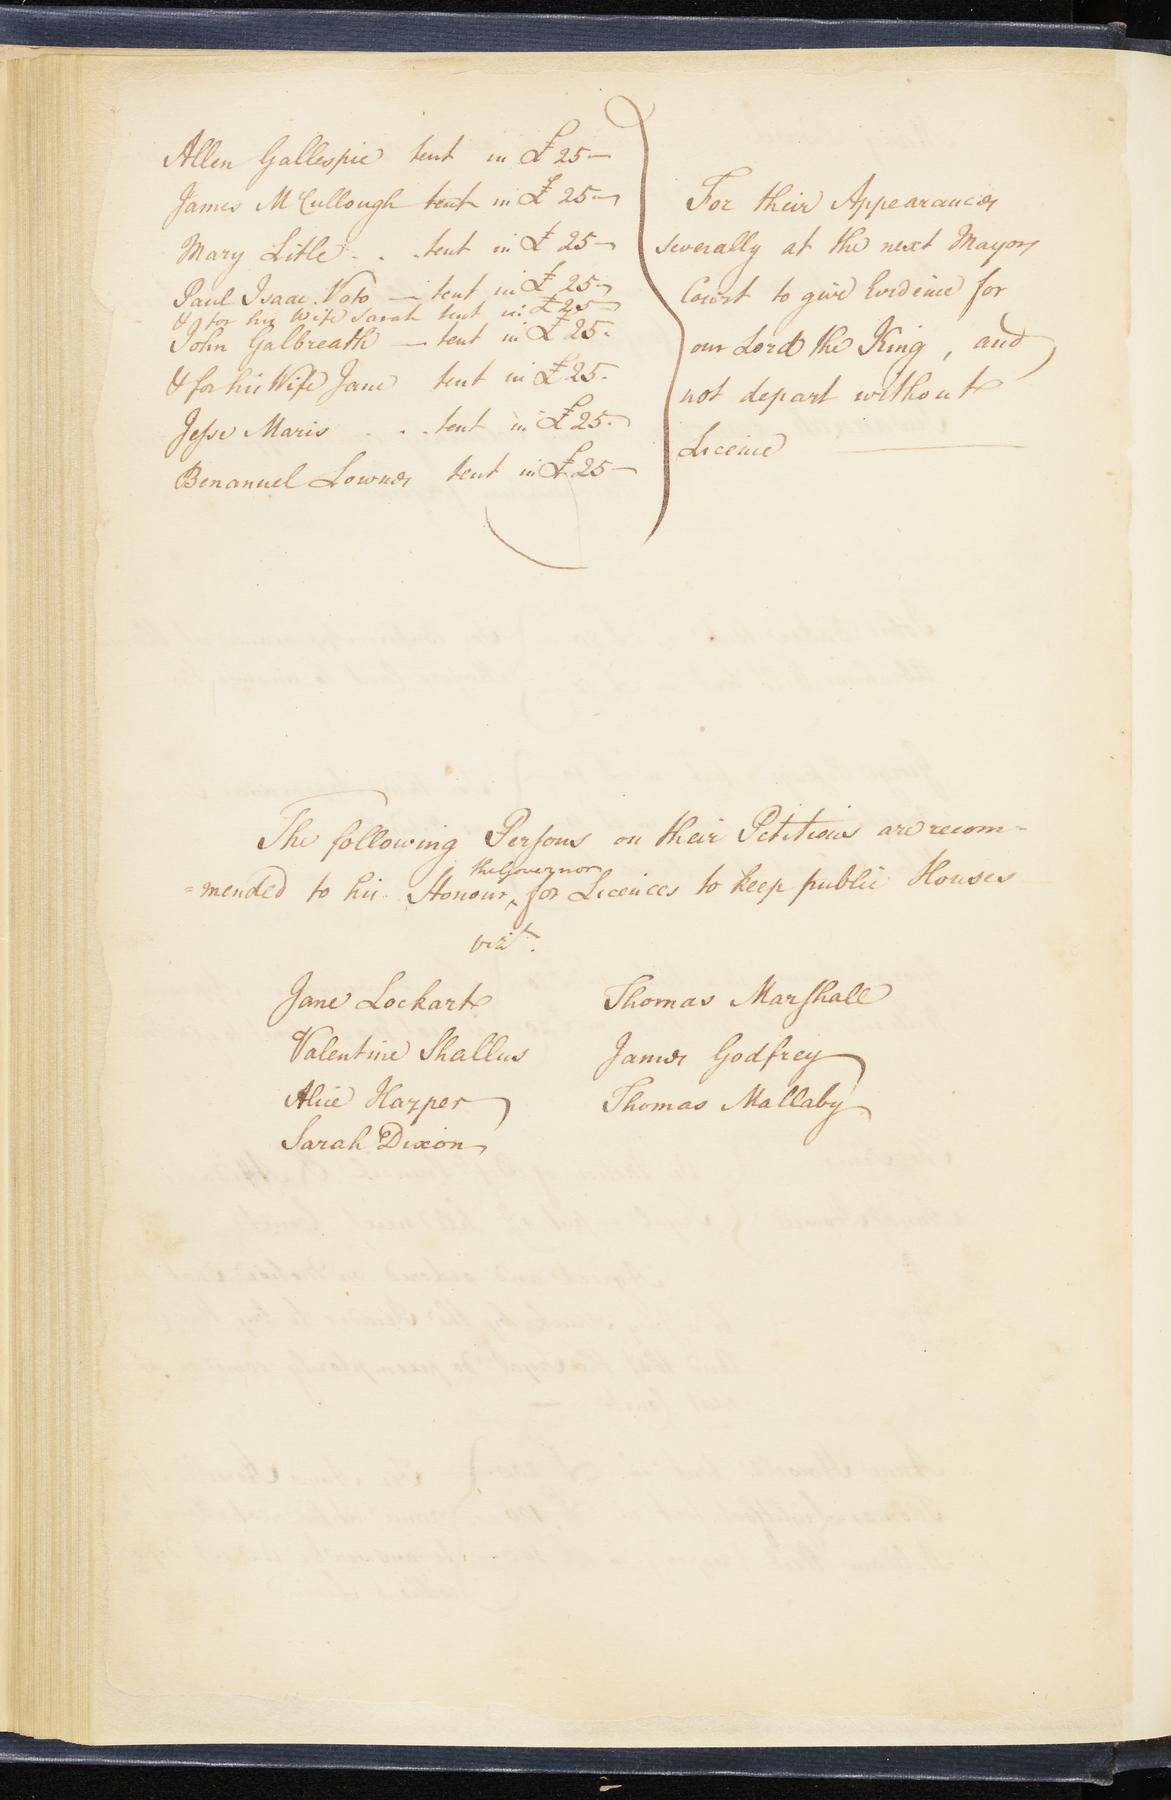 Allen Gallespie tent in £ 25
James McCullough tent in £ 25
Mary Litle . . . tent in £ 25
Paul Isaac Voto — tent in £ 25
& for his Wife Sarah tent in £ 25
John Galbreath — tent in £ 25.
& for his Wife Jane tent in £ 25.
Jesse Maris . . . tent in £ 25.
Benanuel Lownes tent in £ 25—
For their Appearances
severally at the next Mayors
Court to give Evidence for
our Lord the King, and
not depart without
Licence
The following Persons on their Petitions are recom=
=mended to his Honour ^ the Governor for Licences to keep public Houses
vizt.
Jane Lockart
Valentine Shallus
Alice Harper
Sarah Dixon
Thomas Marshall
James Godfrey
Thomas Mallaby